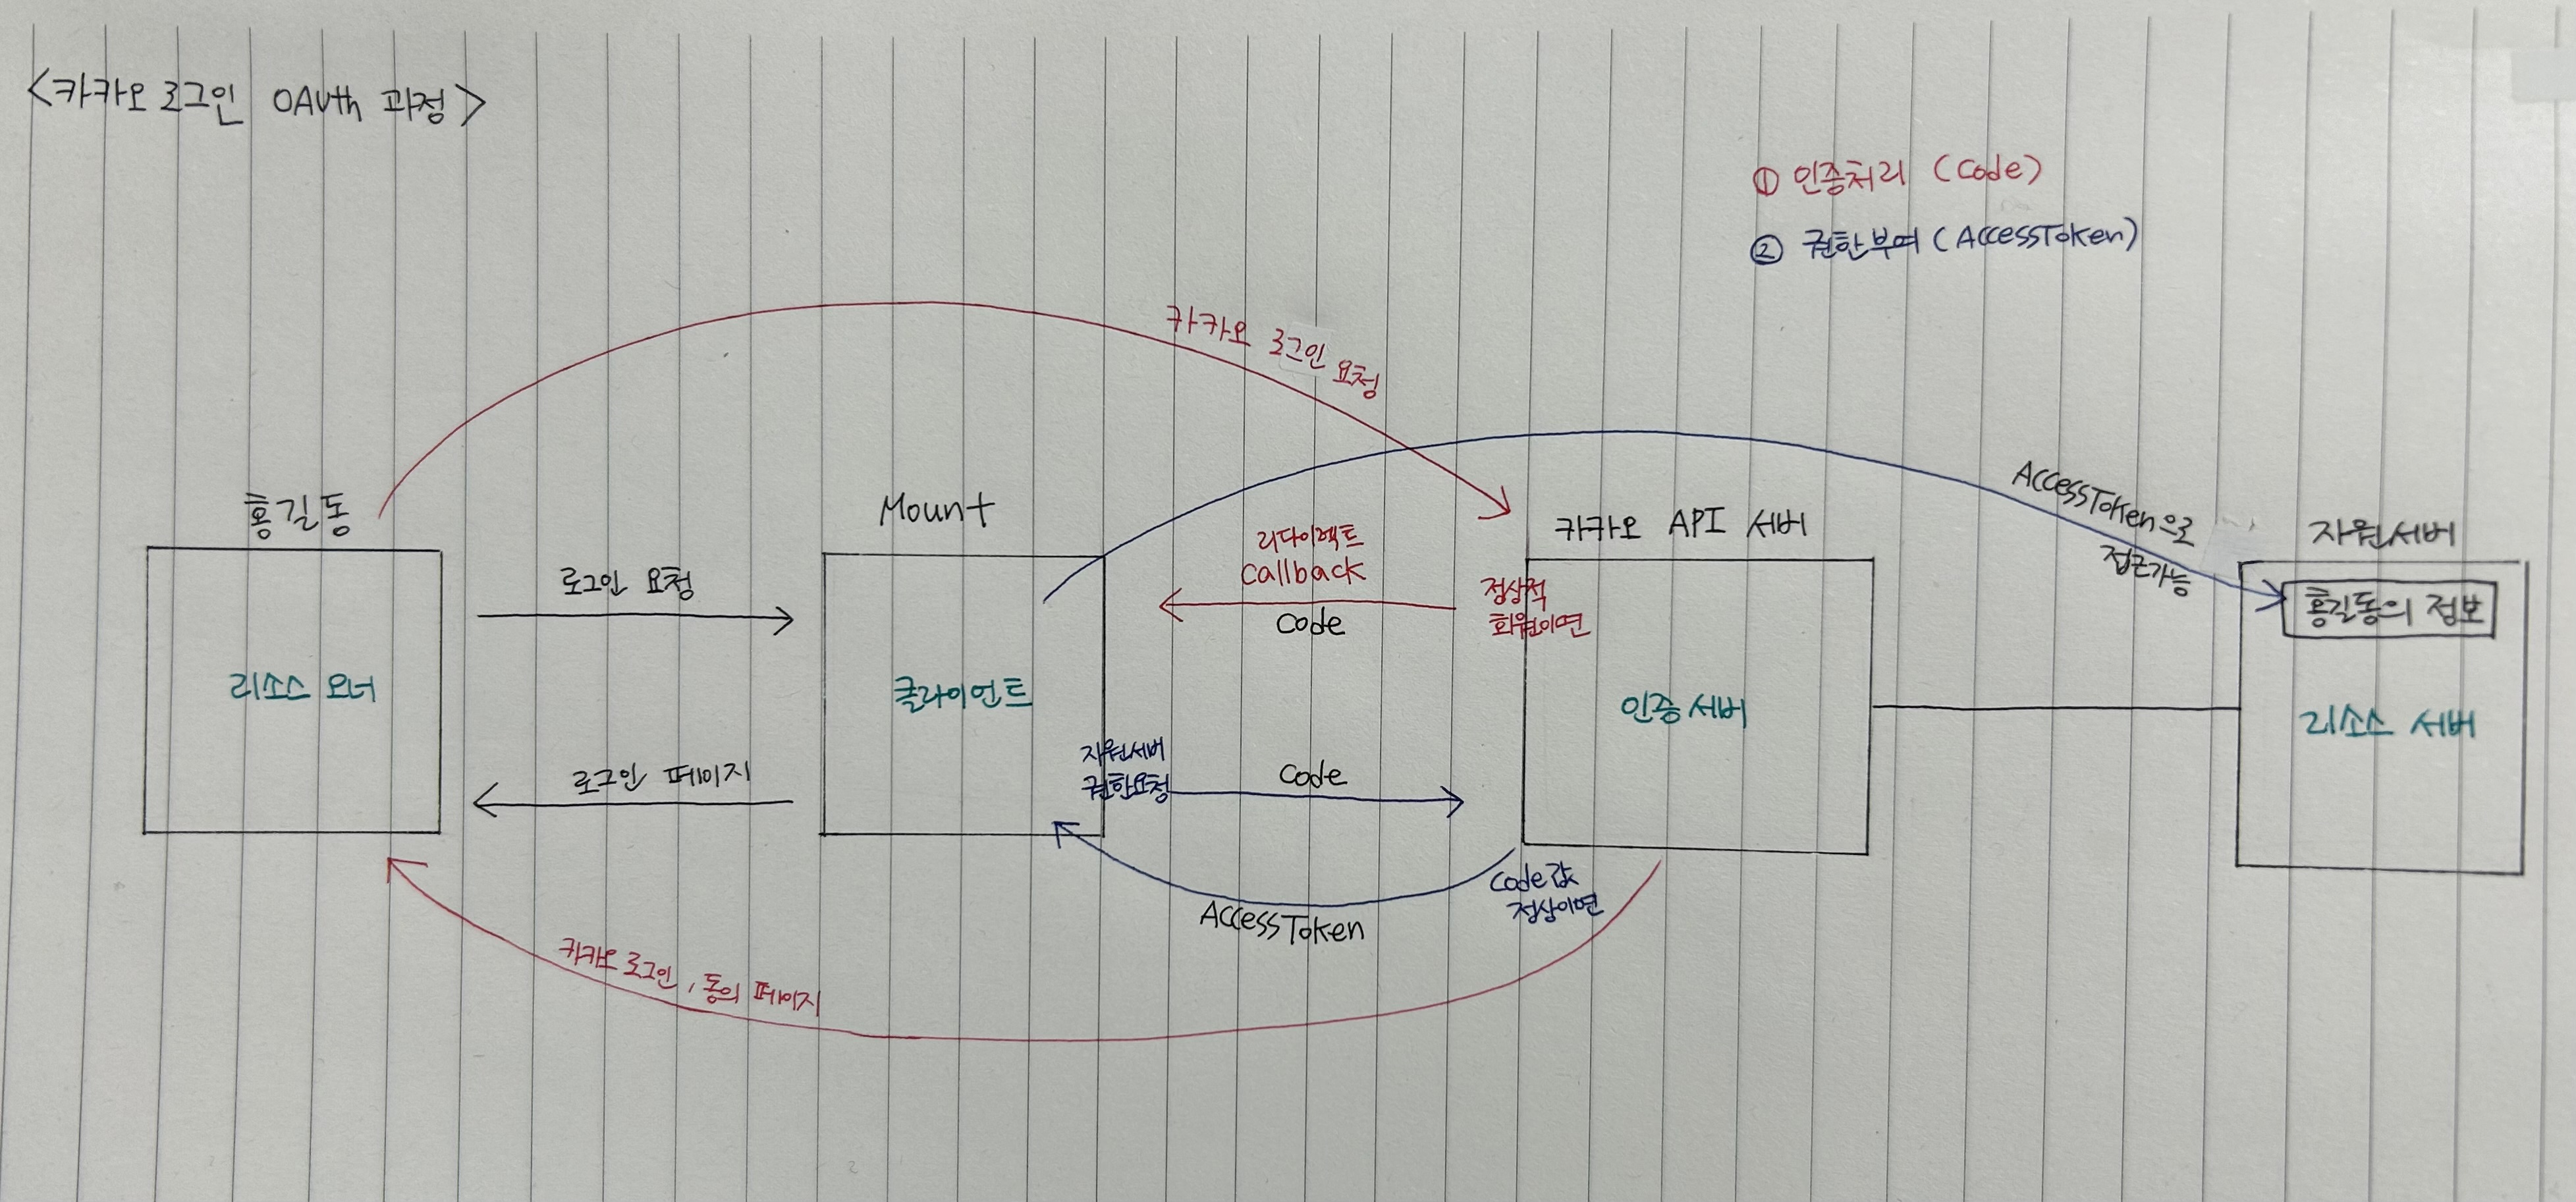 <카카오 로그인 OAuth 과정>
① 인증처리 (Code)
② 권한부여 (AccessToken)
카카오 로그인 요청
홍길동
Mount
카카오 API 서버
자원서버
AccessToken으로
접근가능
로그인 요청
리다이렉트
Callback
Code
정상적
회원이면
홍길동의 정보
리소스 오너
클라이언트
인증서버
리소스 서버
로그인 페이지
자원서버
권한요청
Code
AccessToken
Code값
정상이면
카카오 로그인, 동의 페이지